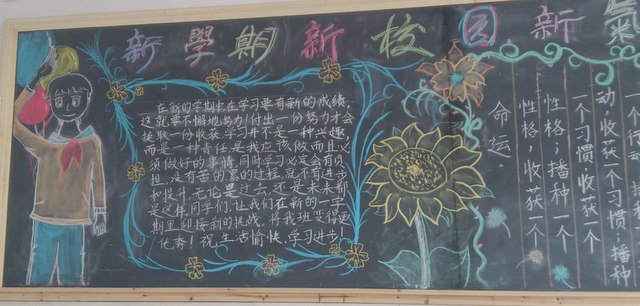 新學期新校园新
在新的学期中在学习要有新的成绩,
这就要不懈地努力!付出一份努力才会
获取一份收获.学习并不是一种兴趣,
而是一种责任是我应该做而且必
须做好的事情,同时学习必定会有负
担,没有苦的累的过程,就不有进步
和提升,无论是过去,还是未来都
是这样.同学们,让我们在新的一学
期里,迎接新的挑战,将我班变得更
优秀!祝,生活愉快,学习进步!
动收获一个习惯,播种
一个习惯,收获一个
性格;播种一个
性格,收获一个
命运